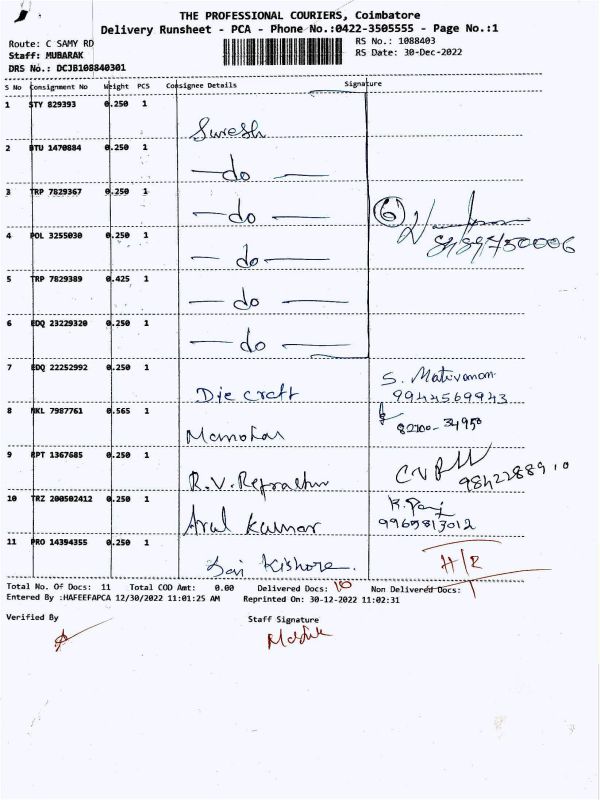 THE PROFESSIONAL COURIERS, Coimbatore
Delivery Runsheet - PCA - Phone No.:0422-3505555 - Page No.:1
Route: C SAMY RD
RS No.: 1088403
Staff: MUBARAK
RS Date: 30-Dec-2022
DRS No.: DCJB108840301
S No Consignment No Weight PCS Consignee Details Signature
1 STY 829393 0.250 1 Suresh
2 BTU 1470884 0.250 1 — do —
3 TRP 7829367 0.250 1 — do — 6
4 POL 3255030 0.250 1 — do —
5 TRP 7829389 0.425 1 — do —
6 EDQ 23229320 0.250 1 — do —
7 EDQ 22252992 0.250 1 Die craft S. Mativanan
9944569943
8 NKL 7987761 0.565 1 Manohar 82700-34950
9 RPT 1367685 0.250 1 R.V. 9842288910
10 TRZ 200502412 0.250 1 Arul Kumar
9965813012
11 PRO 14394355 0.250 1 Sai Kishore. H/R
Total No. Of Docs: 11 Total COD Amt: 0.00 Delivered Docs: 10 Non Delivered Docs: 1
Entered By :HAFEEFAPCA 12/30/2022 11:01:25 AM Reprinted On: 30-12-2022 11:02:31
Verified By Staff Signature